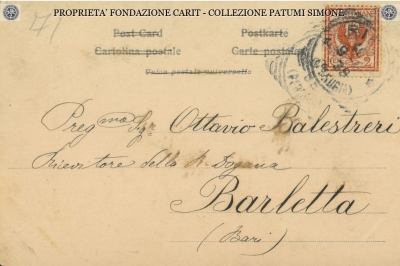 PROPRIETA' FONDAZIONE CARIT - COLLEZIONE PATUMI SIMONE
Post Card Postkarte
Cartolina postale Carte postale
Union postale universelle
Preg.mo Sigr Ottavio Balestreri
Ricevitore della R. Dogana
Barletta
(Bari)